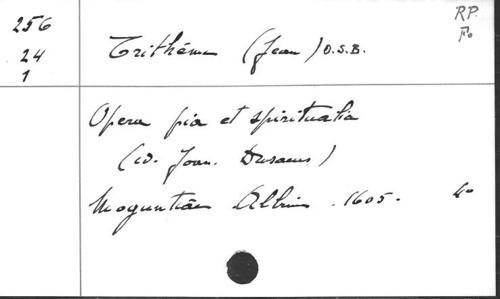 256
24
1
RP.
Fo
Trithème (Jean) O.S.B.
Opera pia et spiritualia
(ed. Joan. Busaeus)
Moguntiae Albin. 1605. 4o